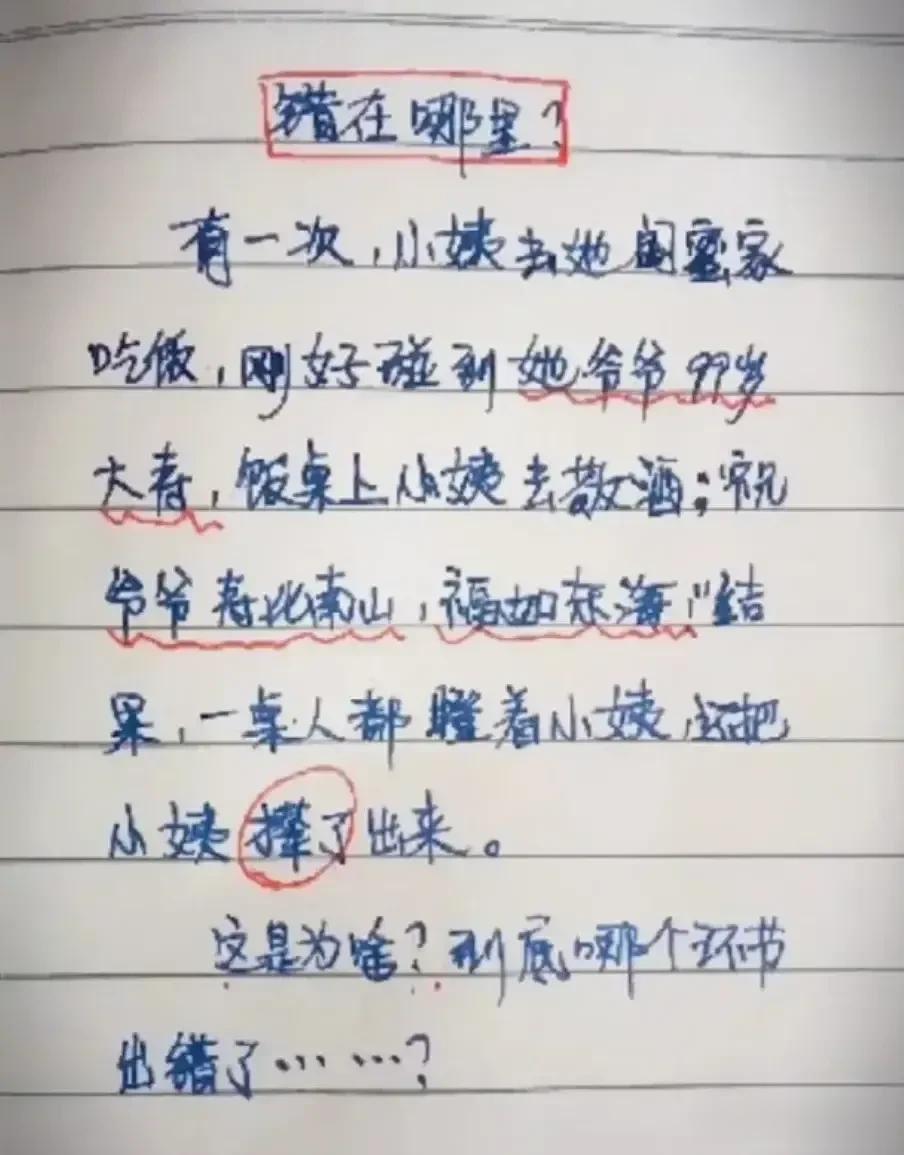 错在哪里?
有一次,小姨去她闺蜜家
吃饭,刚好碰到她爷爷99岁
大寿,饭桌上小姨去敬酒:"祝
爷爷寿比南山,福如东海,"结
果,一桌人都瞪着小姨,还把
小姨撵了出来。
这是为啥?到底哪个环节
出错了……?